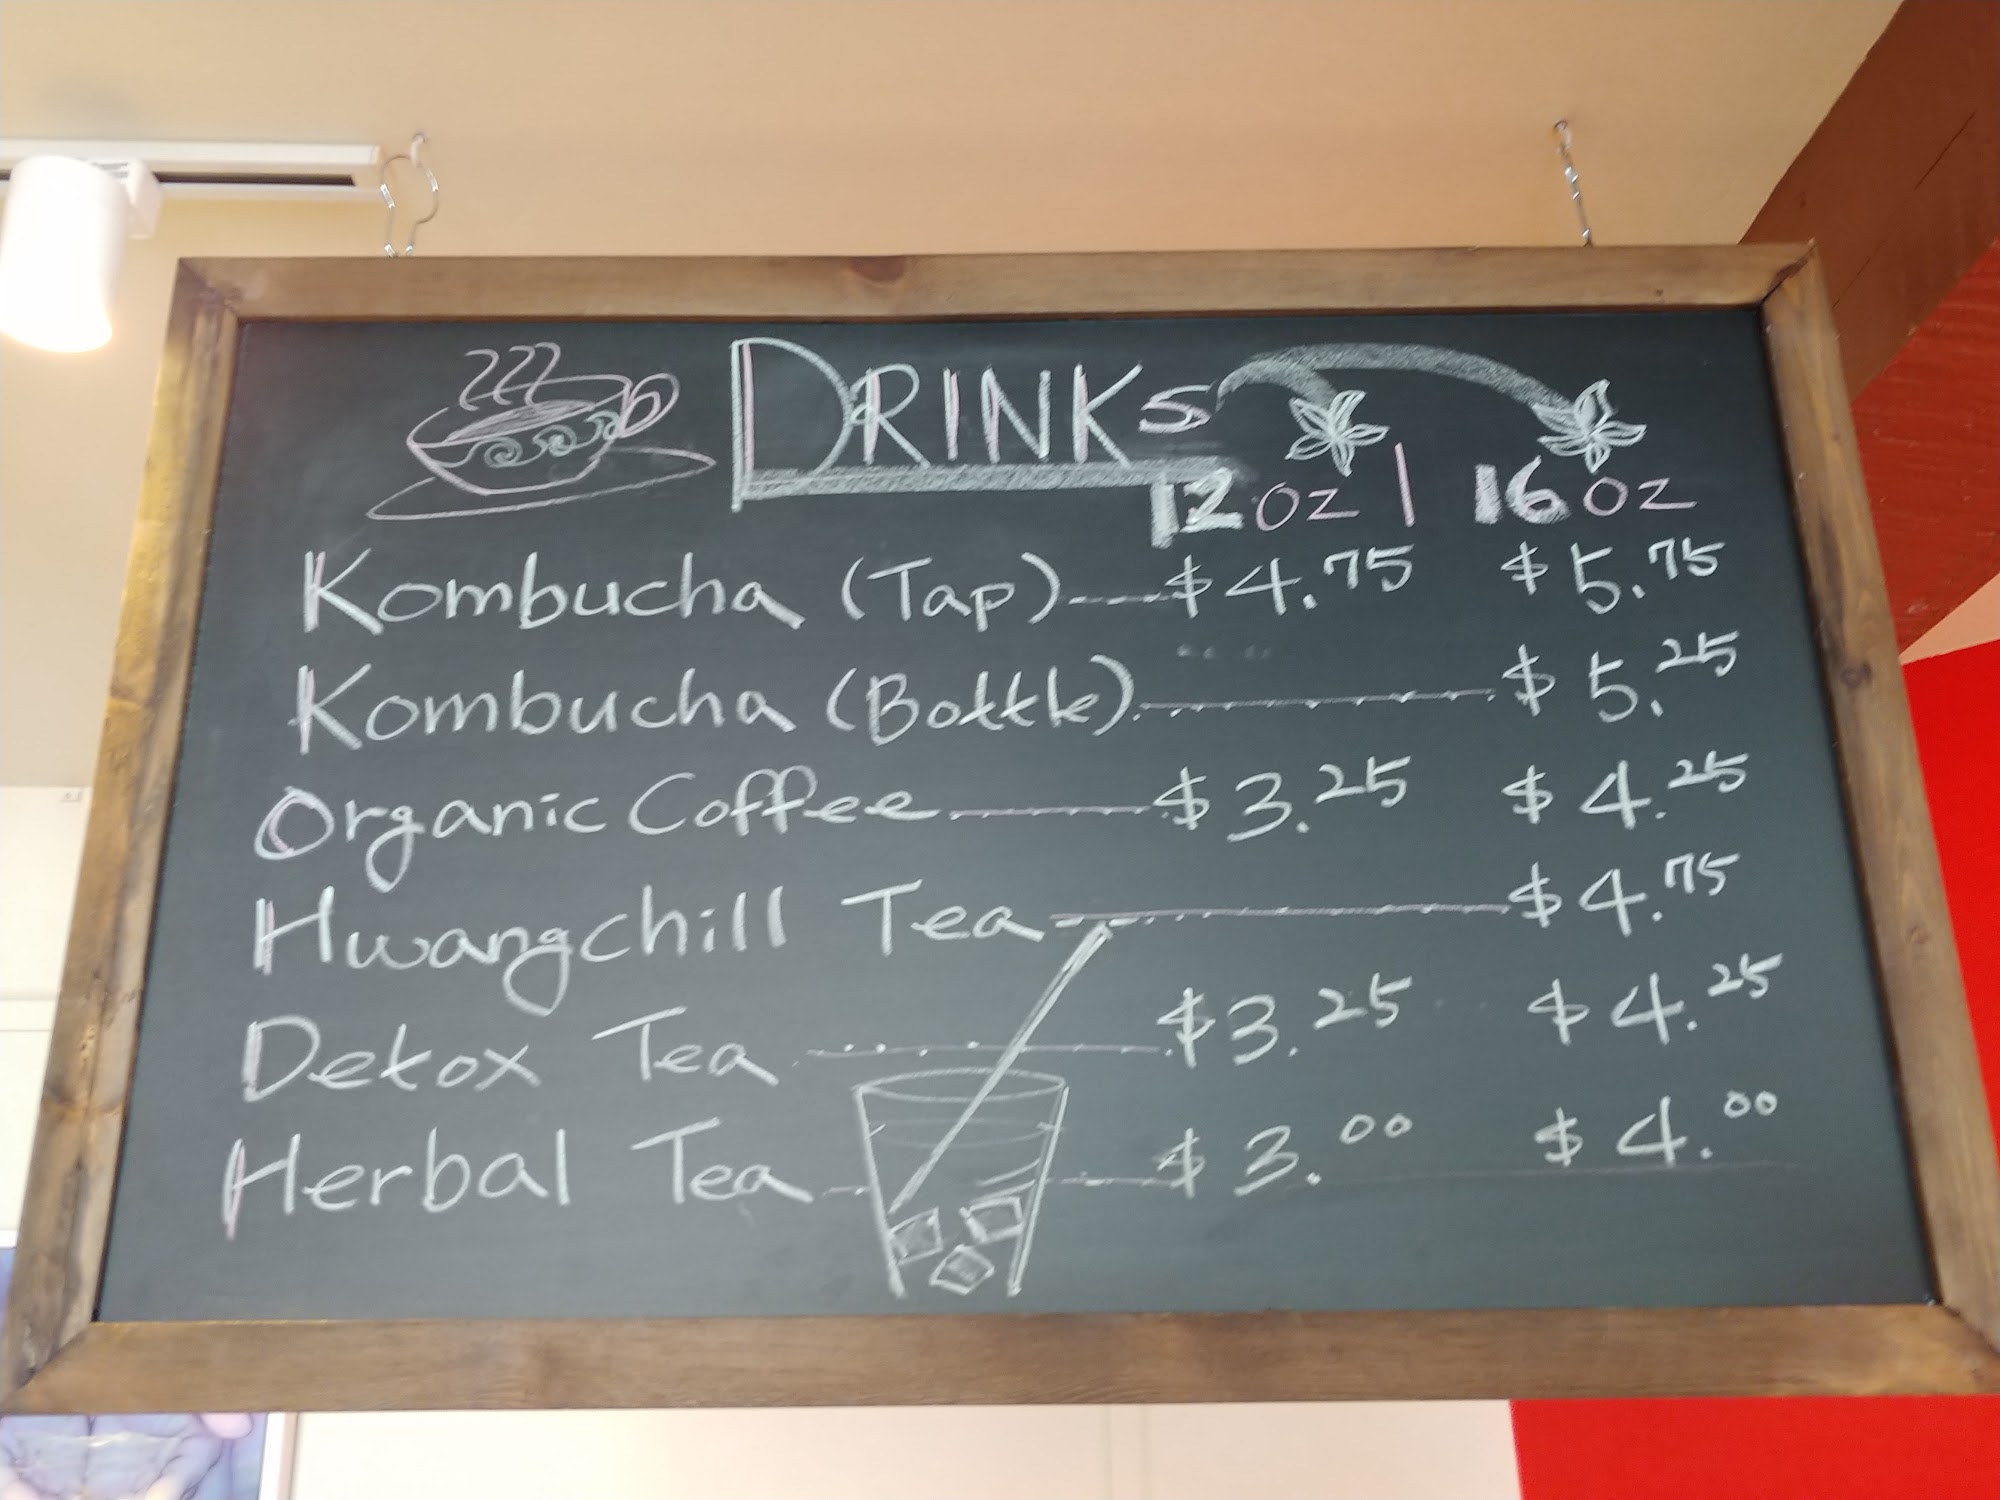 DRINKS
12 oz | 16 oz
Kombucha (Tap) $4.75 $5.75
Kombucha (Bottle) $5.25
Organic Coffee $3.25 $4.25
Hwangchill Tea $4.75
Detox Tea $3.25 $4.25
Herbal Tea $3.00 $4.00